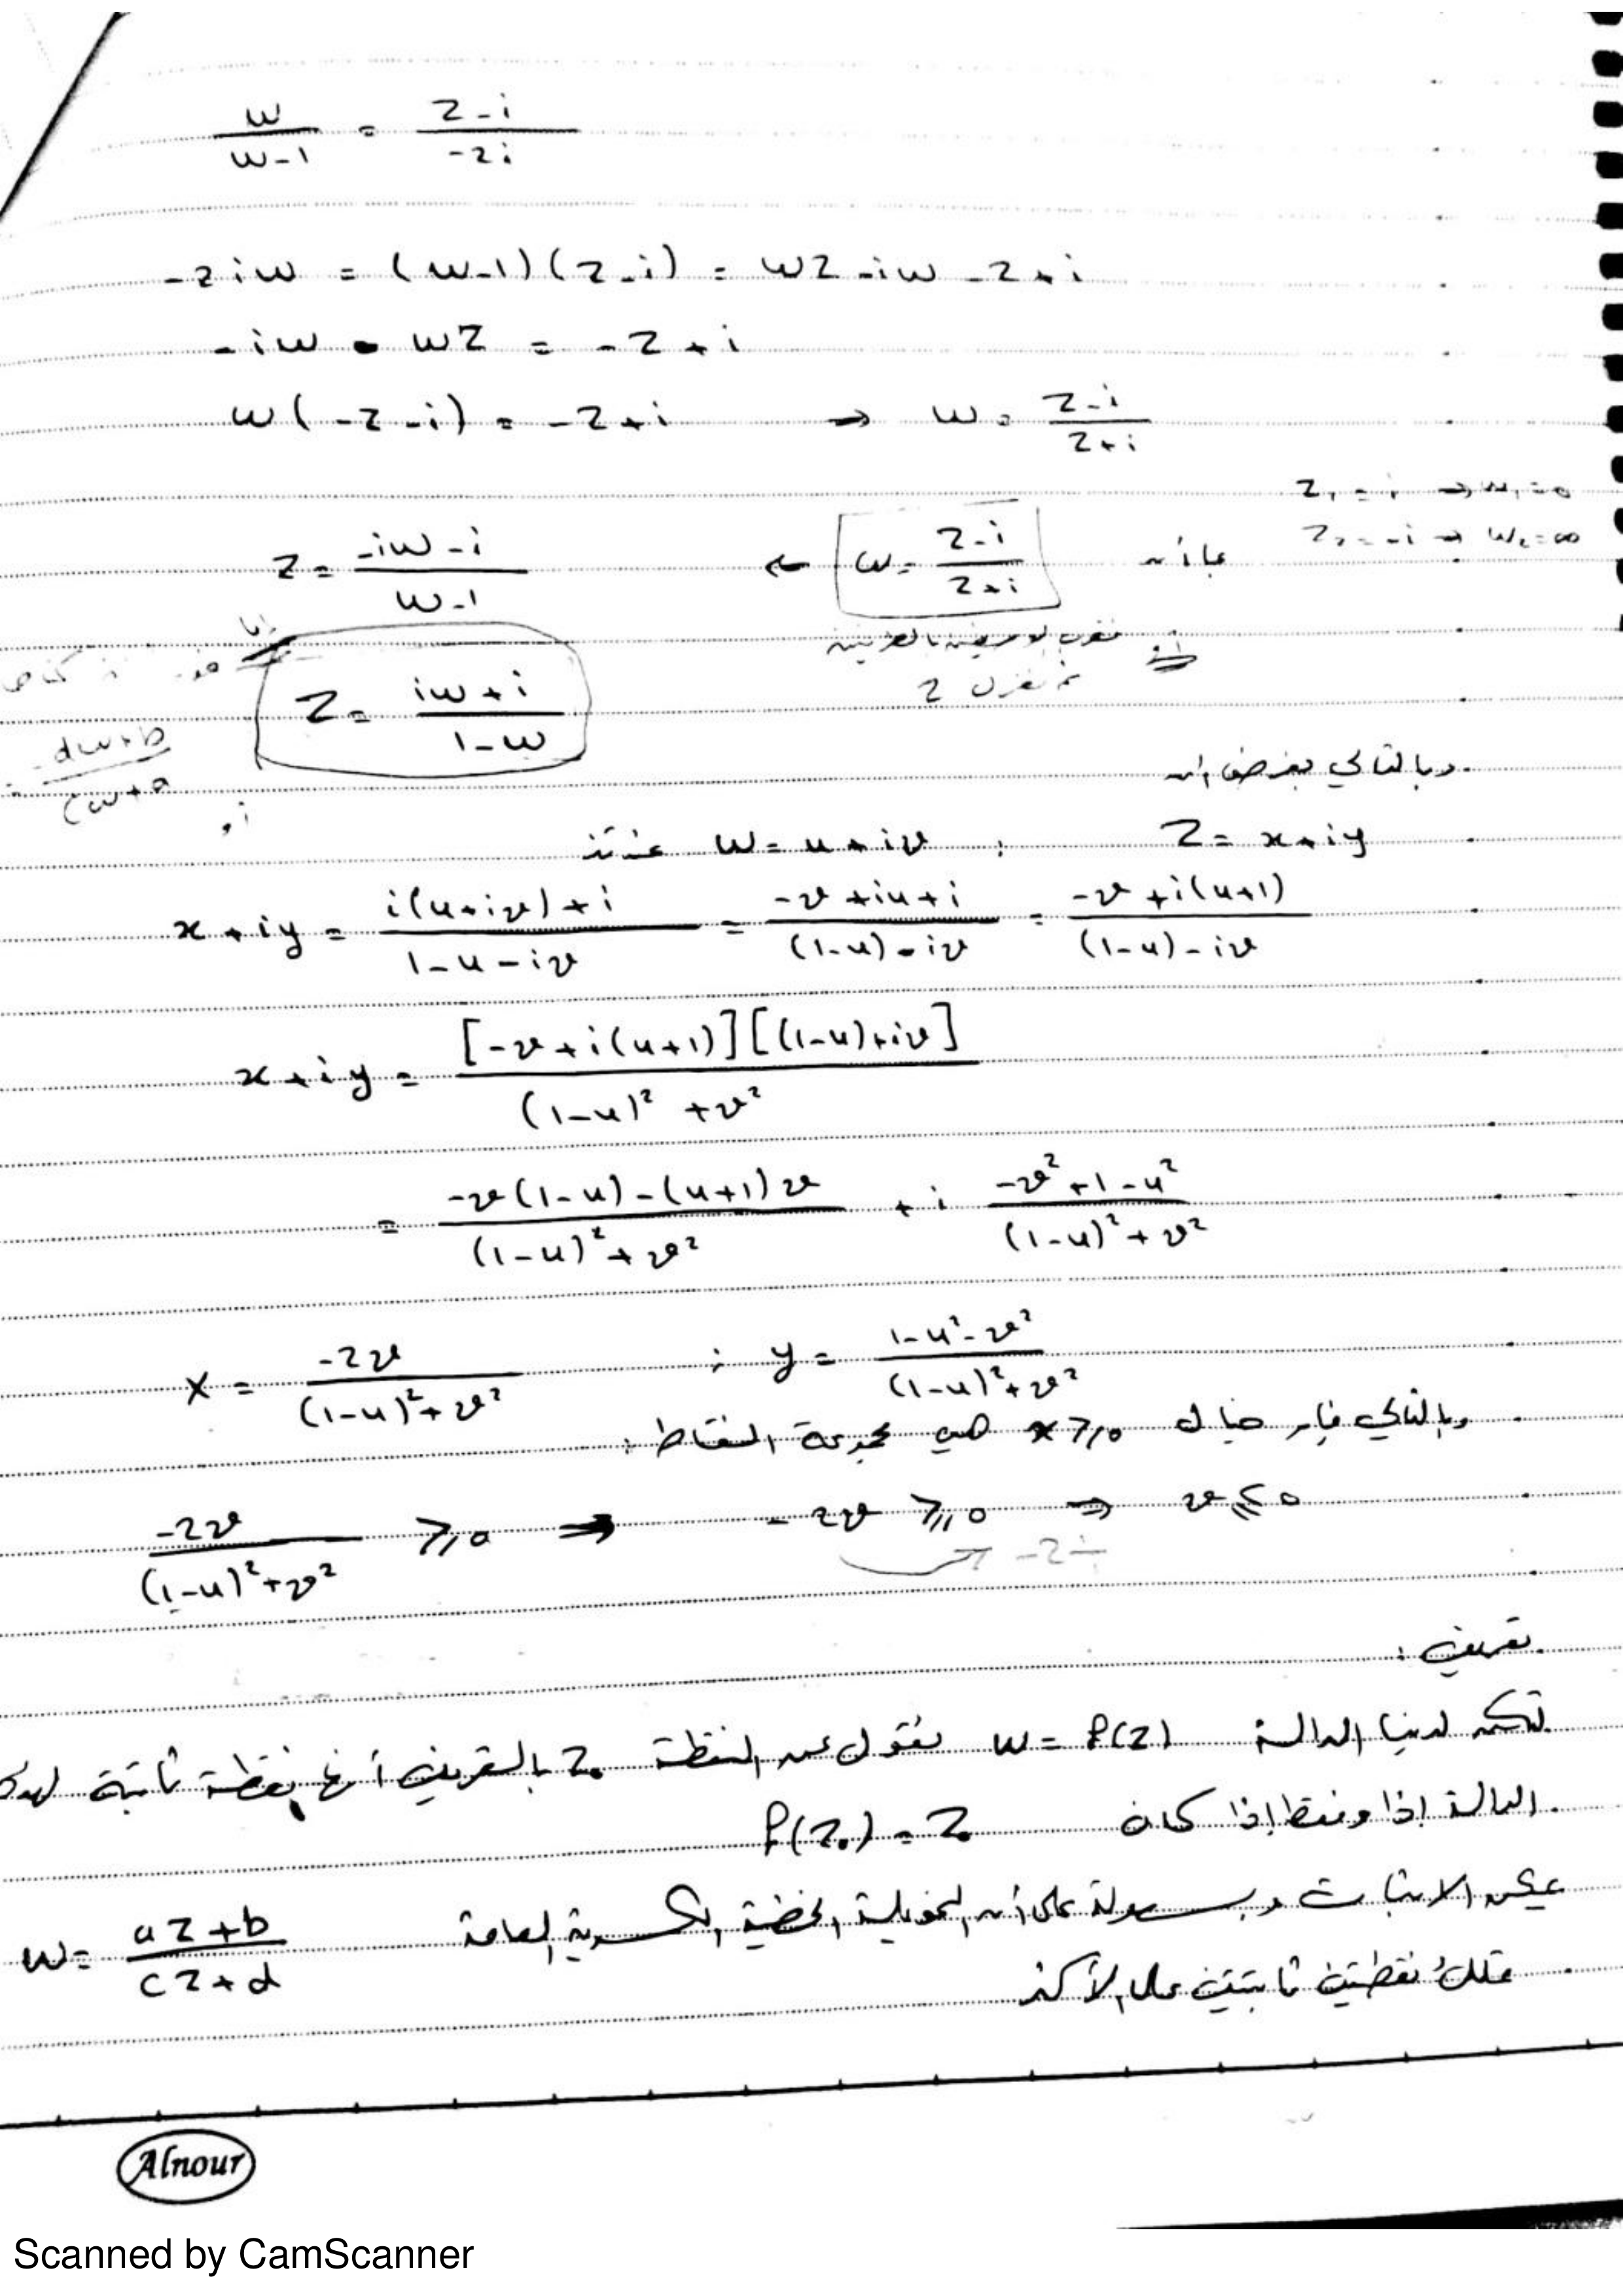 w/(w-1) = (z-i)/(-2i)
-2iw = (w-1)(z-i) = wz - iw - z + i
-iw - wz = -z + i
w(-z-i) = -z+i → w = (z-i)/(z+i)
z₁ = i → w₁ = 0
z₂ = -i → w₂ = ∞
بما أنه w = (z-i)/(z+i) ← z = (-iw-i)/(w-1)
ثم نعزل z
z = (iw+i)/(1-w)
(-dw+b)/(cw+a)
وبالتالي بفرض أنه
z = x+iy ; w = u+iv عندئذ
x+iy = (i(u+iv)+i)/(1-u-iv) = (-v+iu+i)/((1-u)-iv) = (-v+i(u+1))/((1-u)-iv)
x+iy = [-v+i(u+1)][(1-u)+iv]/((1-u)²+v²)
= (-v(1-u)-(u+1)v)/((1-u)²+v²) + i (-v²+1-u²)/((1-u)²+v²)
x = -2v/((1-u)²+v²) ; y = (1-u²-v²)/((1-u)²+v²)
وبالتالي فإن خيال x ≥ 0 هي مجموعة النقاط :
-2v/((1-u)²+v²) ≥ 0 ⇒ -2v ≥ 0 ⇒ v ≤ 0
÷ -2
تعريف :
لتكن لدينا الدالة w = f(z) نقول عن النقطة z₀ بالتعريف أنها نقطة ثابتة لهذه
الدالة إذا وفقط إذا كان f(z₀) = z₀
يمكن الاثبات وبسهولة على أنه التحويلة الخطية الكسرية العامة w = (az+b)/(cz+d)
تملك نقطتين ثابتتين على الأكثر
Alnour
Scanned by CamScanner